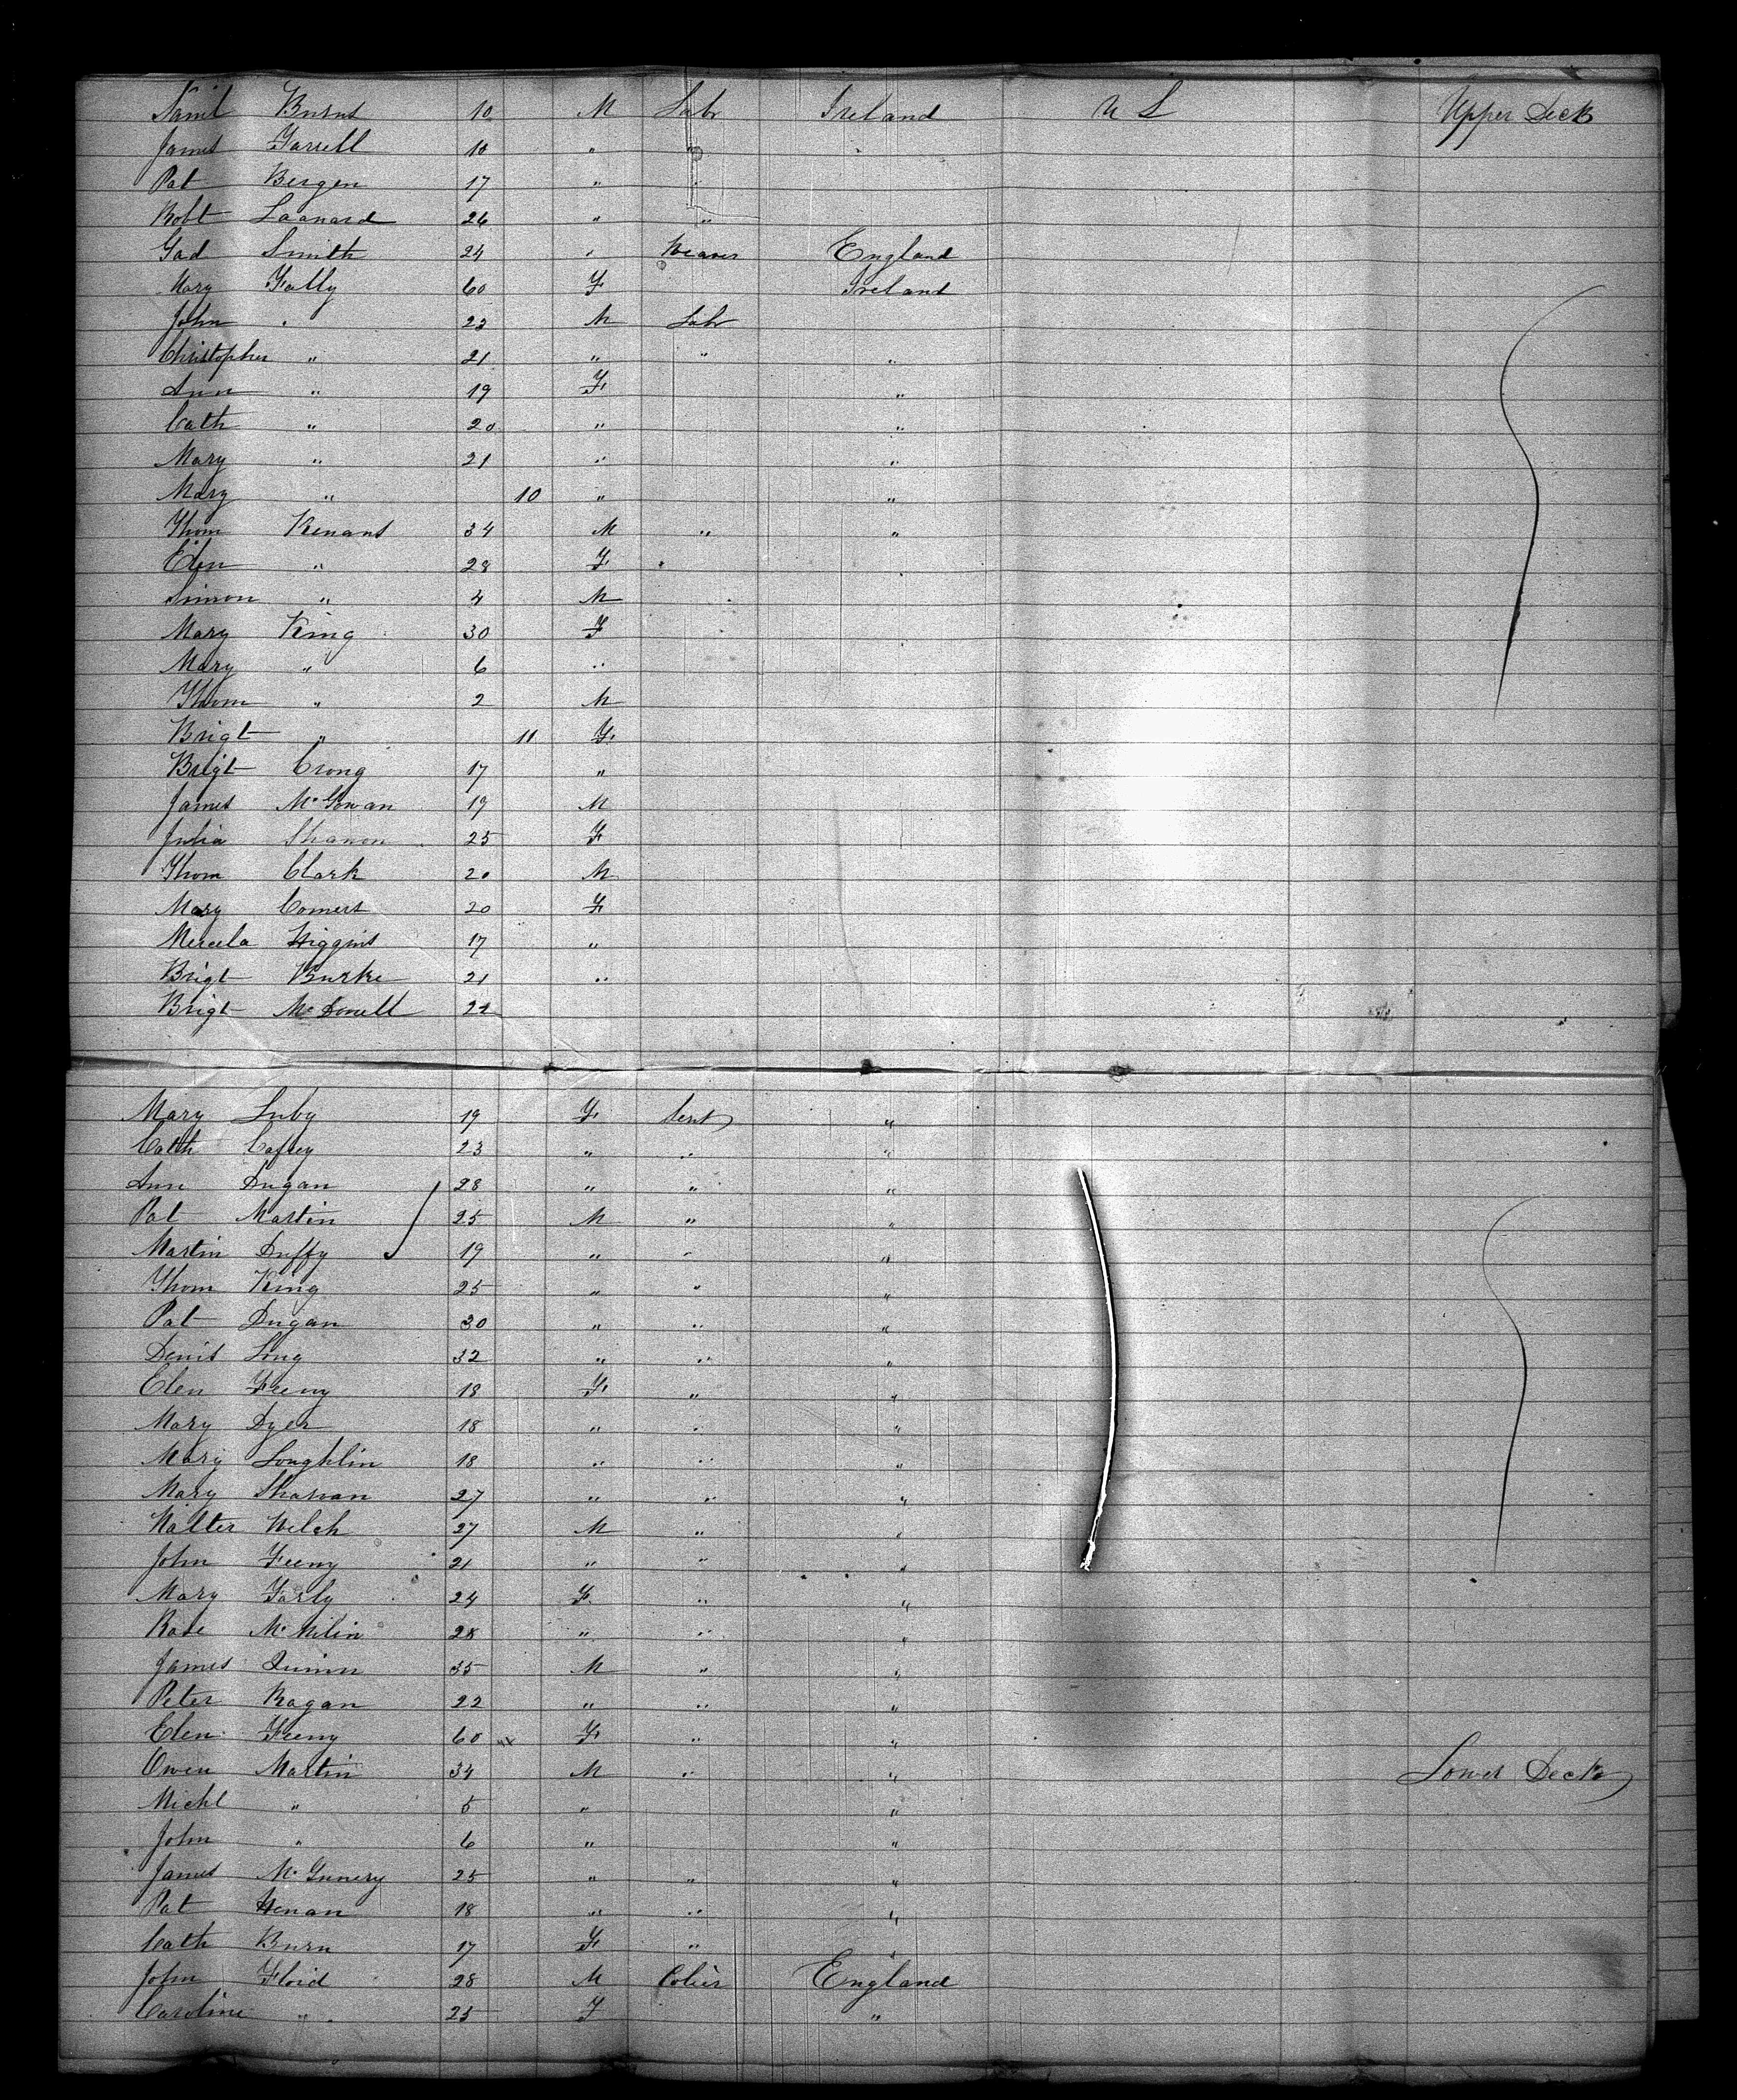 Saml Burns 10 M Labr Ireland U S Upper Deck
James Farrell 10 "
Pat Bergen 17 " "
Robt Laanard 26 " "
God Smith 24 " Weaver England
Mary Fally 60 F Ireland
John " 23 M Labr
Christopher " 21 " " "
Ann " 19 F "
Cath " 20 " "
Mary " 21 " "
Mary " 10 " "
Thom Kenans 34 M " "
Elen " 28 F
Simon " 4 M
Mary King 30 F
Mary " 6 "
Thom " 2 M
Brigt " 11 F
Brigt Crong 17 "
James McGowan 19 M
Julia Shanon 25 F
Thom Clark 20 M
Mary Comers 20 F
Mercela Higgins 17 "
Brigt Burke 21 "
Brigt McDonell 22
Mary Luby 19 F Servt "
Cath Cafrey 23 " " "
Ann Dugan 28 " " "
Pat Martin 25 M " "
Martin Duffy 19 " " "
Thom King 25 " " "
Pat Dugan 30 " " "
Denis Long 32 " " "
Elen Feeny 18 F " "
Mary Dyer 18 " " "
Mary Loughlin 18 " " "
Mary Sharan 27 " " "
Walter Welch 27 M " "
John Feeny 21 " " "
Mary Farly 24 F " "
Rose McNilin 28 " " "
James Quinn 35 M " "
Peter Ragan 22 " " "
Elen Feeny 60 F " "
Owen Martin 34 M " " Lower Deck
Michl " 5 " "
John " 6 " "
James McGunery 25 " " "
Pat Henan 18 " " "
Cath Burn 17 F " "
John Floid 28 M Colier England
Caroline " 25 F "